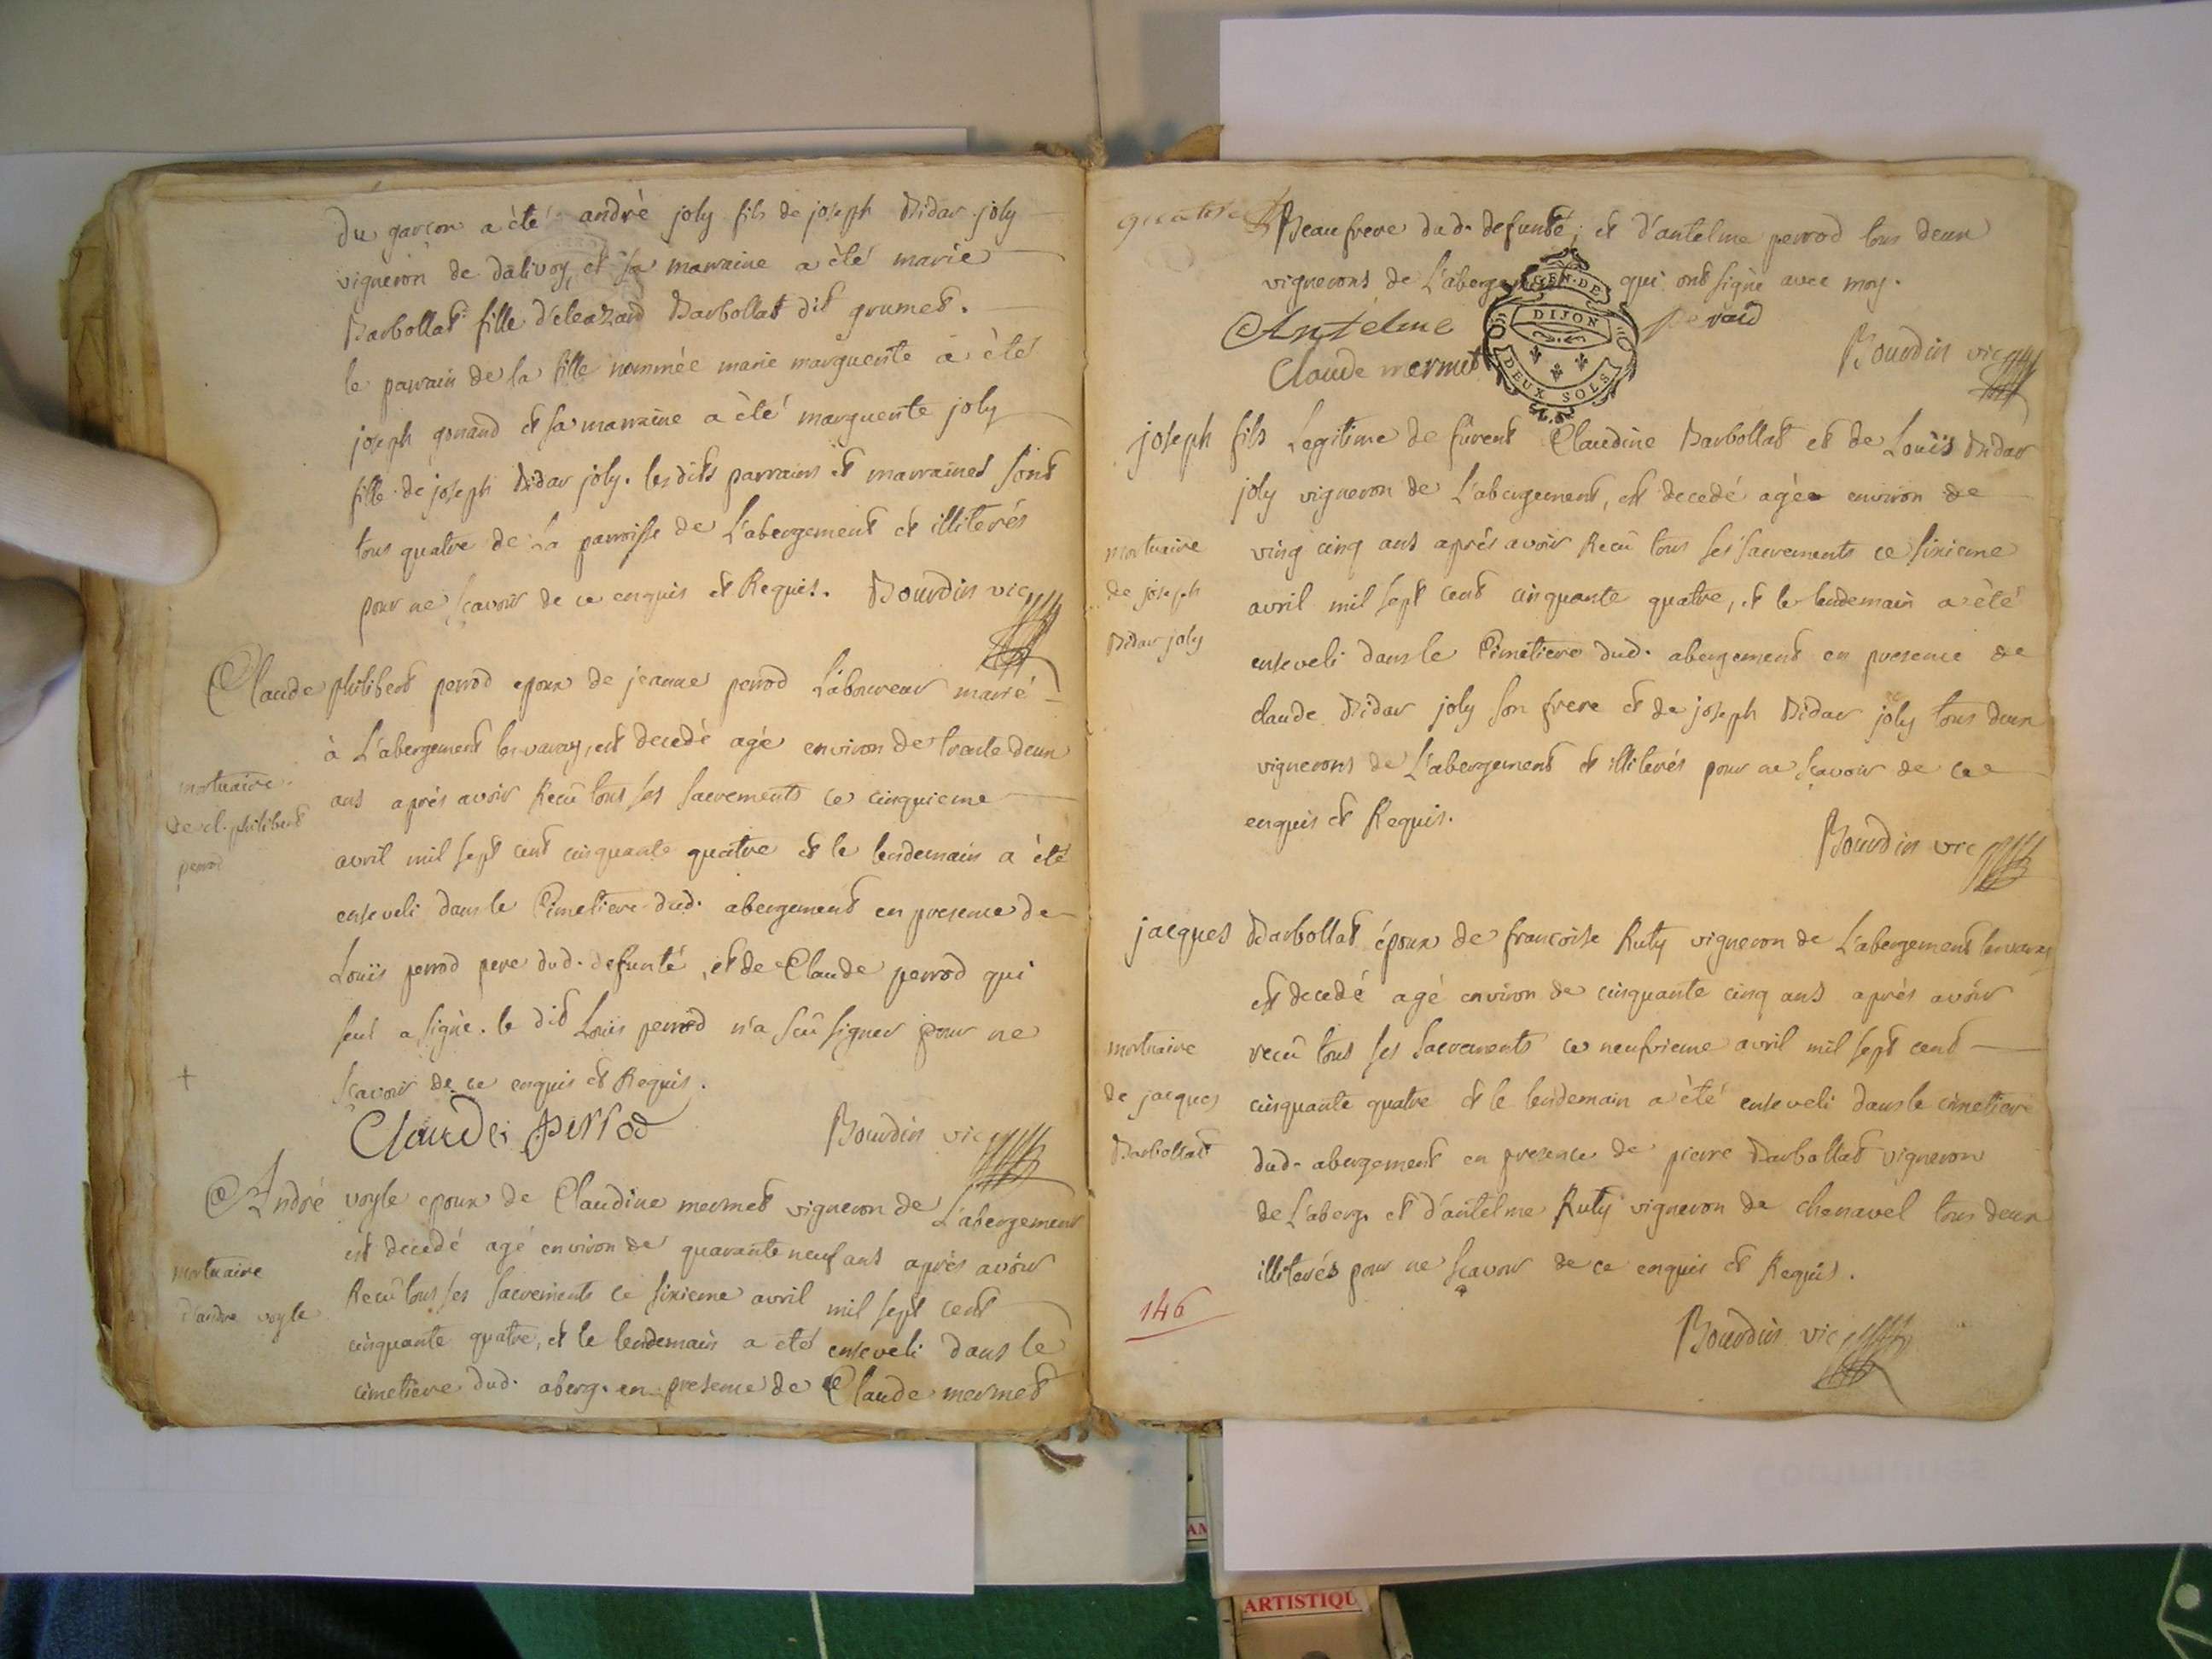 du garçon a èté andrè joly fils de joseph Bidar joly
vigneron de dalivoy et sa marraine a èté marie
Barbollat fille d'eleazard Barbollat dit grumet.
le parrain de la fille nommée marie marguerite a èté
joseph gonand et sa marraine a èté marguerite joly
fille de joseph Bidar joly. les dits parrains et marraines sont
tous quatre de La parroisse de L'abergement et illiterés
pour ne sçavoir de ce enquis et Requis. Bourdin vic
Claude philibert perrod epoux de jeanne perrod Laboureur marié
à L'abergement le varey, est decedé agé environ de trante deux
ans aprés avoir Reçû tous ses sacrements ce cinquieme
avril mil sept cent cinquante quatre et le lendemain a èté
enseveli dans le Cimetiere dud. abergement en presence de
Louis perrod pere dud. defunté, et de Claude perrod qui
seul a signè. le dit Louis perrod n'a sçû signer pour ne
sçavoir de ce enquis et Requis.
mortuaire
de cl. philibert
perrod
+
Claude perrod
Bourdin vic
André voyle epoux de Claudine mermet vigneron de L'abergement
est decedé agé environ de quarante neuf ans aprés avoir
Reçû tous ses sacrements ce sixieme avril mil sept cent
cinquante quatre, et le lendemain a eté enseveli dans le
cimetiere dud. aberg. en presence de Claude mermet
mortuaire
d'andre voyle
Beaufrere dud. defunté, et d'antelme perrod tous deux
vignerons de L'abergement qui ont signè avec moy.
GEN. DE
DIJON
DEUX SOLS
Antelme
Claude mermet
Bourdin vic
joseph fils Legitime de fûrent Claudine Barbollat et de Louïs Bidar
joly vigneron de L'abergement, est decedé agée environ de
ving cinq ans aprés avoir Recû tous ses sacrements ce sixieme
avril mil sept cent cinquante quatre, et le lendemain a èté
enseveli dans le Cimetiere dud. abergement en presence de
claude Bidar joly son frere et de joseph Bidar joly tous deux
vignerons de L'abergement et illiterés pour ne sçavoir de ce
enquis et Requis.
mortuaire
de joseph
Bidar joly
Bourdin vic
jacques Barbollat époux de francoise Ruty vigneron de L'abergement le varey
est decedé agé environ de cinquante cinq ans aprés avoir
recû tous ses sacrements ce neufvieme avril mil sept cent
cinquante quatre et le lendemain a èté enseveli dans le cimetiere
dud. abergement en presence de pierre Barbollat vigneron
de L'aberg. et d'antelme Ruty vigneron de chenavel tous deux
illiterés pour ne sçavoir de ce enquis et Requis.
mortuaire
de jacques
Barbollat
146
Bourdin vic
ARTISTIQU